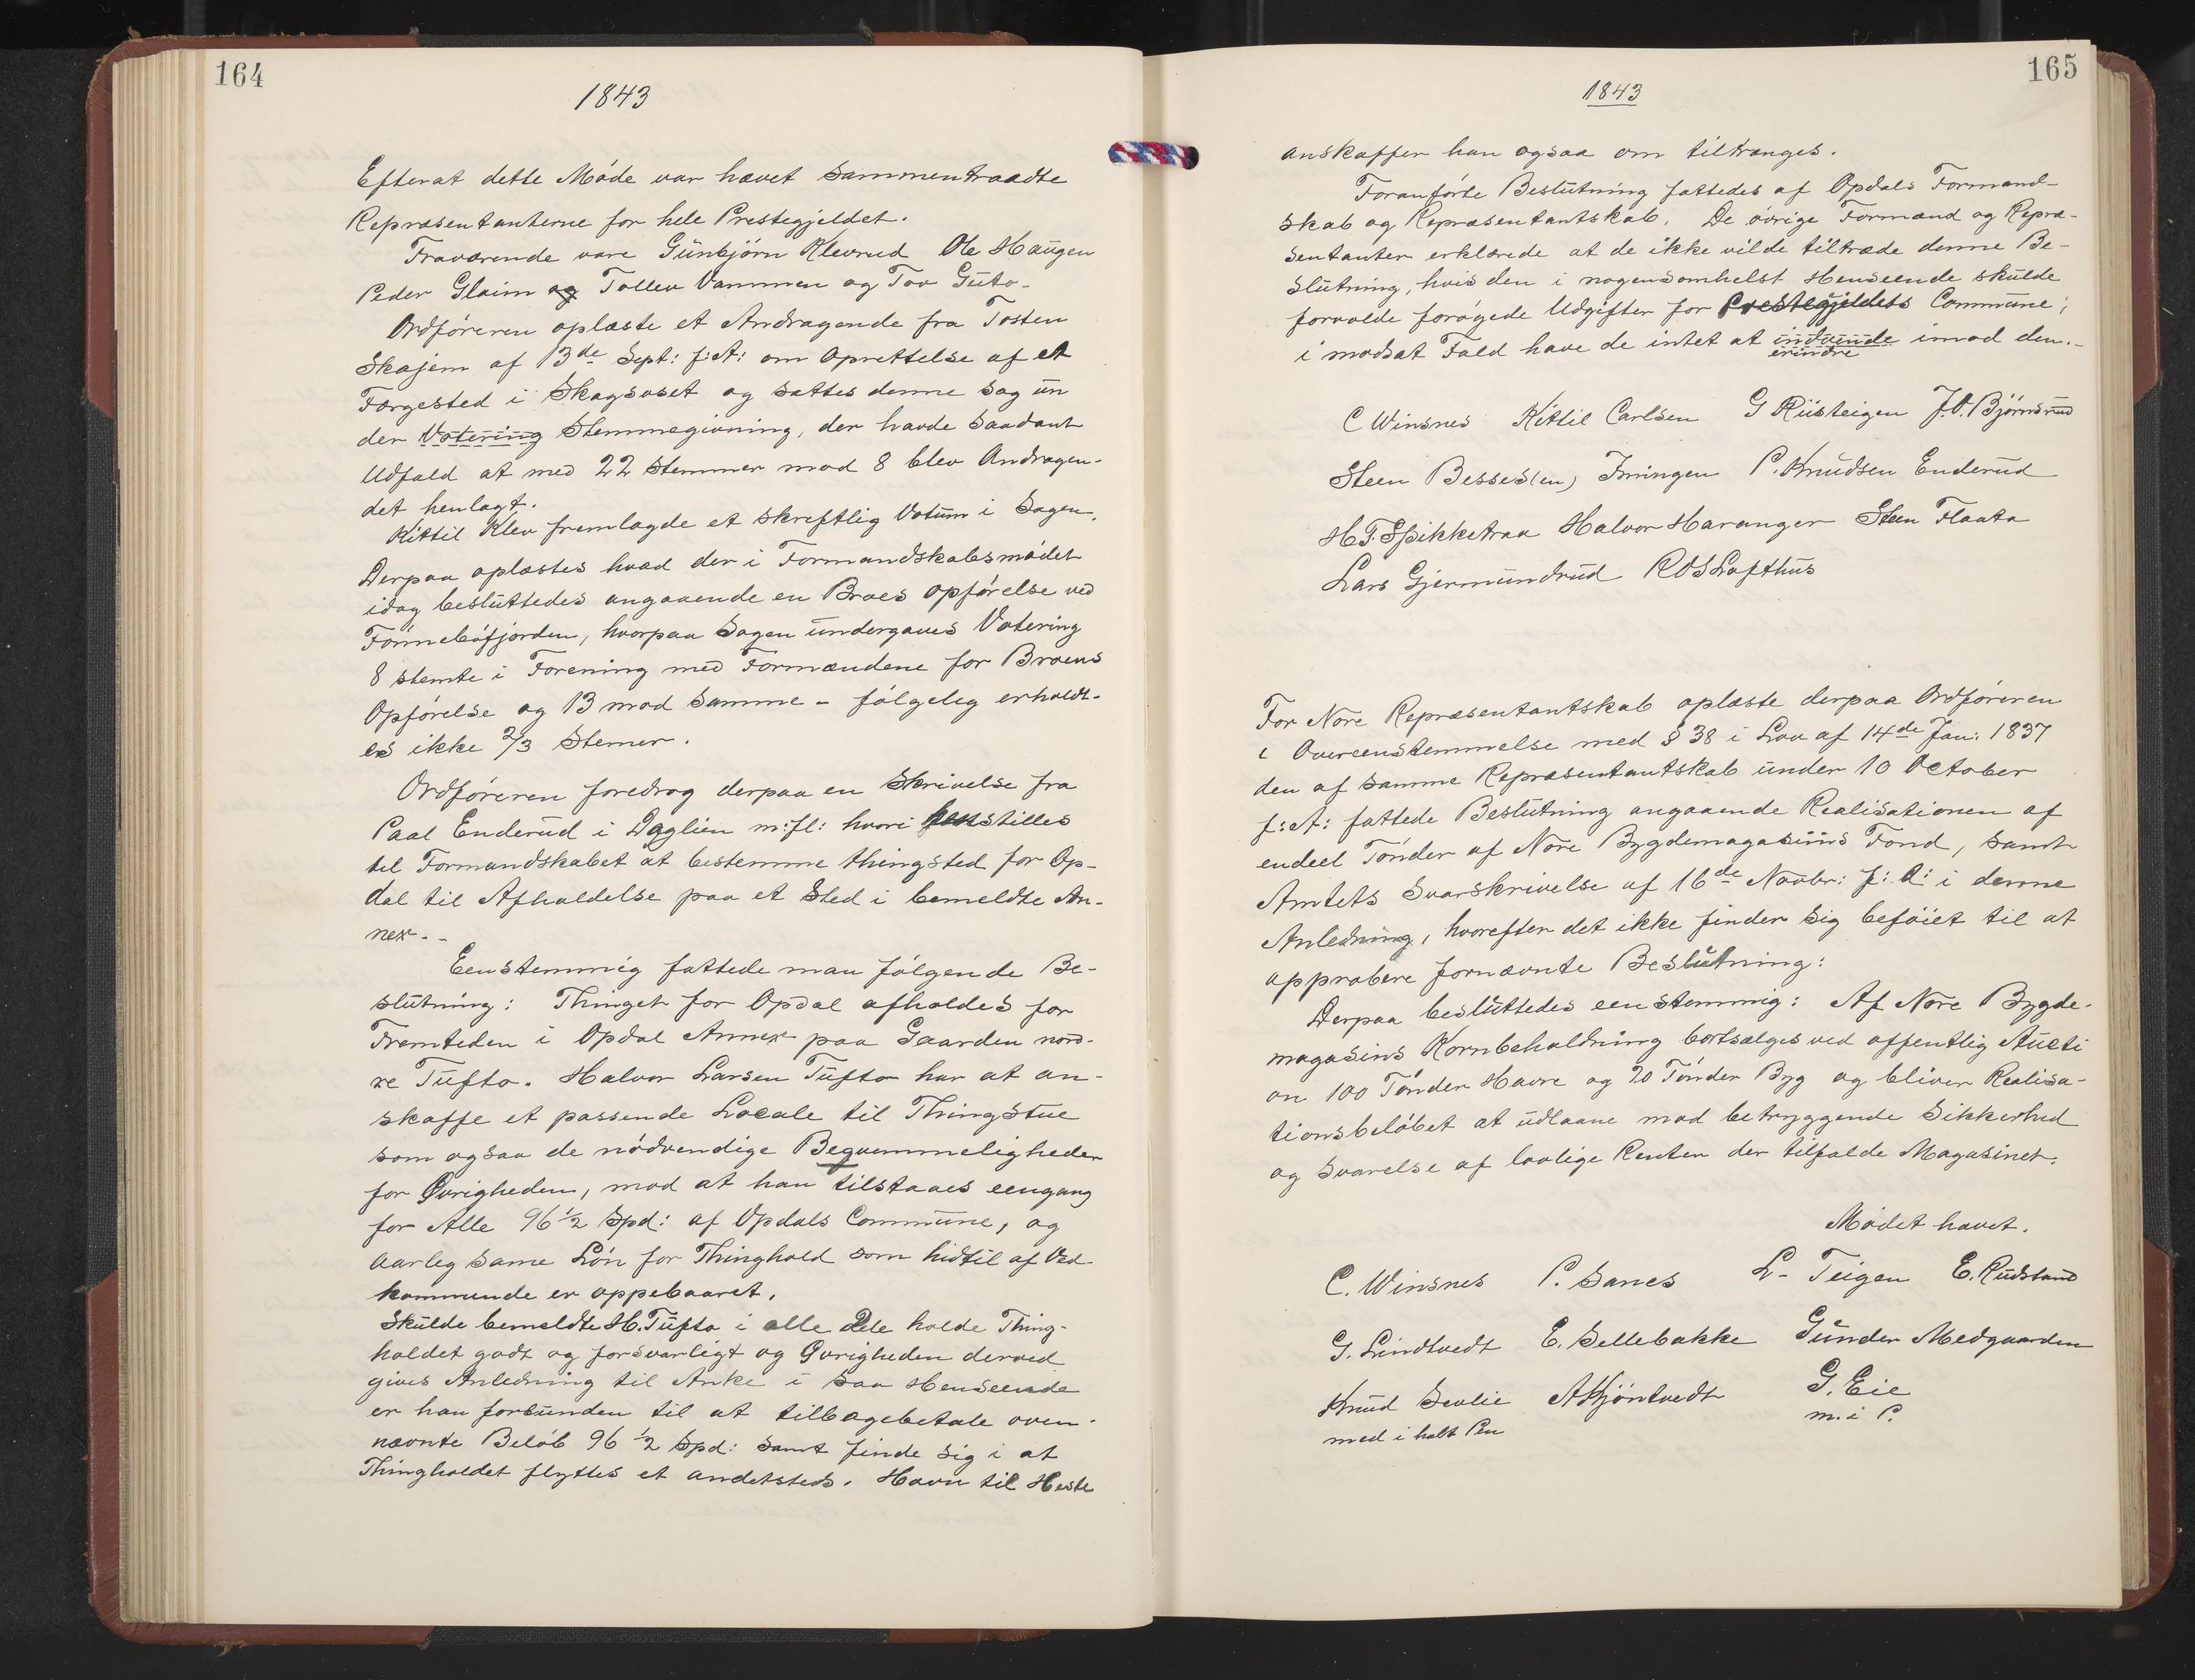 164
1843
Efterat dette Möde var hævet sammentraadte
Repræsentanterne for hele Prestegjeldet.
Fraværende vare Günbjörn Klevrud Ole Haugen
Peder Glaim og Tollev Vammen og Tov Guto.
Ordföreren oplæste et Andragende fra Tosten
Skajem af 13de Sept: f:A: om Oprettelse af et
Færgested i Skagsoset og sattes denne Sag ün
der Votering Stemmegivning, der havde saadant
Udfald at med 22 Stemmer mod 8 blev Andragen-
det henlagt.
Kittil Klev fremlagde et skreftlig Votum i Sagen.
Derpaa oplæstes hvad der i Formandskabsmödet
idag besluttedes angaaende en Broes Opförelse ved
Fönneböfjorden, hvorpaa Sagen undergaves Votering
8 stemte i Forening med Formændene for Broens
Opförelse og 13 mod Samme - fölgelig erholdt-
es ikke 2/3 Stemer.
Ordföreren foredrog derpaa en Skrivelse fra
Paal Enderud i Dagalien m:fl: hvori henstilles
til Formandskabet at bestemme thingsted for Op-
dal til Afholdelse paa et Sted i bemeldte An-
nex. -
Eenstemmig fattede man fölgende Be-
slutning: Thinget for Opdal afholdes for
Fremtiden i Opdal Annex paa Gaarden nord-
re Tufto. Halvor Larsen Tufto har at an-
skaffe et passende Locale til Thingstue
som ogsaa de nödvendige Beqvemmeligheder
for Övrigheden, mod at han tilstaaes eengang
for Alle 96 1/2 Spd: af Opdals Commune, og
aarleg same Lön for Thinghold som hidtil af Ved-
kommende er oppebaaret.
Skulde bemeldte H. Tufto i alle Dele holde Thing-
holdet godt og forsvarligt og Övrigheden derved
gives Anledning til Anke i saa Henseende
er han forbunden til at tilbagebetale oven-
nævnte Belöb 96 1/2 Spd: samt finde sig i at
Thingholdet flyttes et andetsteds. Havn til Heste
165
1843
anskaffer han ogsaa om tiltrænges.
Foranförte Beslutning fattedes af Opdals Formand-
skab og Repræsentantskab. De övrige Formænd og Repræ-
sentanter erklærede at de ikke vilde tiltræde denne Be-
slutning, hvis den i nogensomhelst Henseende skulde
forvolde forögede Udgifter for Prestegjeldets Commune;
i modsat Fald have de intet at indvende imod den.-
erindre
C Winsnes Kittil Carlsen G Rüsteigen J.O. Björnsrud
Steen Besses(en) Imingen P. Knudsen Enderud
H T. Spikketraa Halvor Haranger Steen Flaata
Lars Gjermundrud R O S Lofthus
For Nore Repræsentantskab oplæste derpaa Ordföreren
i Overeenstemmelse med § 38 i Lov af 14de Jan: 1837
den af samme Repræsentantskab under 10 October
f:A: fattede Beslutning angaaende Realisationen af
endeel Tönder af Nore Bygdemagasiins Fond, samt
Amtets Svarskrivelse af 16de Novbr: f: A: i denne
Anledning, hvorefter det ikke finder sig beföiet til at
approbere fornævnte Beslutning:
Derpaa besluttedes eenstemmig: Af Nore Bygde-
magasins Kornbeholdning bortsælges ved offentlig Aucti
on 100 Tönder Havre og 20 Tönder Byg og bliver Realisa-
tionsbelöbet at udlaane mod betryggende Sikkerhed
og Svarelse af lovlige Renter der tilfalde Magasinet.
Mödet hævet.
C. Winsnes P. Sanes L. Teigen E. Rudstand
G. Lindtvedt E. Sellebakke Günder Medgaarden
Knud Sevlie A Kjöntvedt G. Eie
med i holt Pen m. i P.